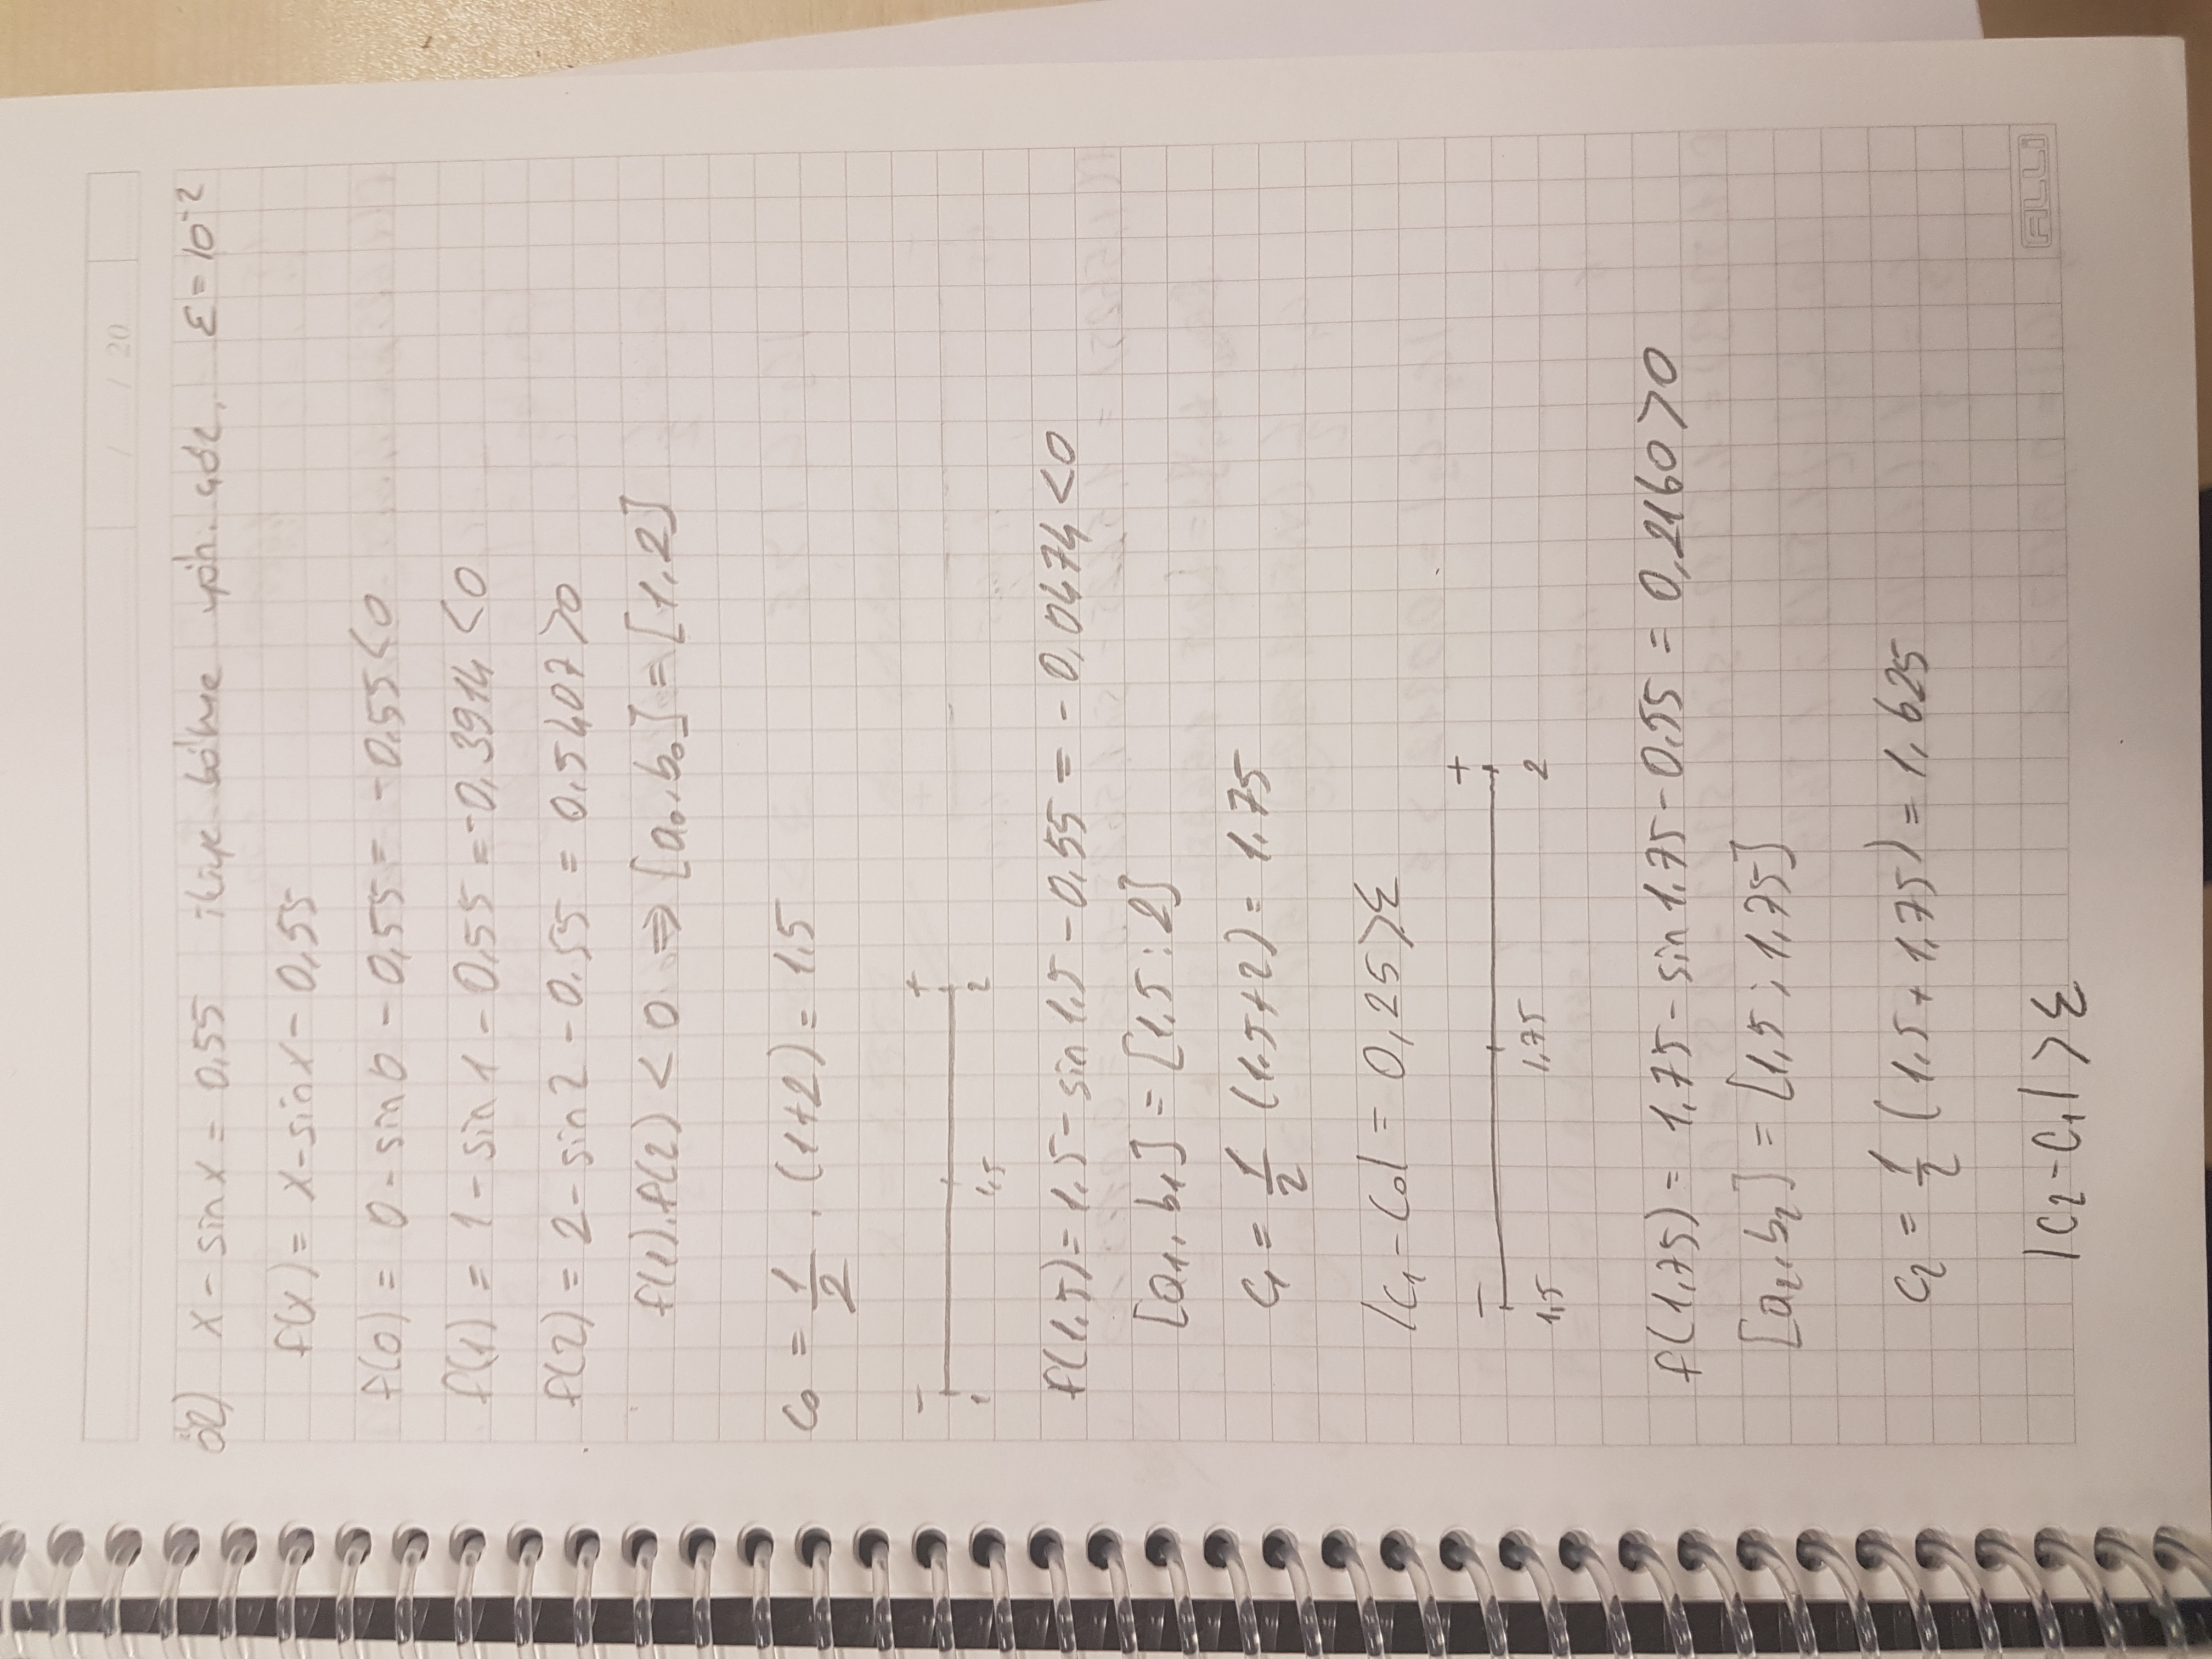 / / 20
ör) x - sinx = 0,55 ikiye bölme yön. çöz. ε = 10⁻²
f(x) = x - sinx - 0,55
f(0) = 0 - sin0 - 0,55 = -0,55 < 0
f(1) = 1 - sin1 - 0,55 = -0,3914 < 0
f(2) = 2 - sin2 - 0.55 = 0,5407 > 0
f(1).f(2) < 0 ⇒ [a₀,b₀] = [1,2]
c₀ = 1/2 . (1+2) = 1.5
- +
1 1,5 2
f(1,5) = 1.5 - sin1.5 - 0,55 = -0,0474 < 0
[a₁,b₁] = [1.5 ; 2]
c₁ = 1/2 (1.5+2) = 1.75
|c₁ - c₀| = 0,25 > ε
- +
1,5 1,75 2
f(1,75) = 1,75 - sin1.75 - 0.55 = 0,2160 > 0
[a₂,b₂] = [1,5 ; 1,75]
c₂ = 1/2 (1.5 + 1,75) = 1,625
|c₂ - c₁| > ε
ALLi